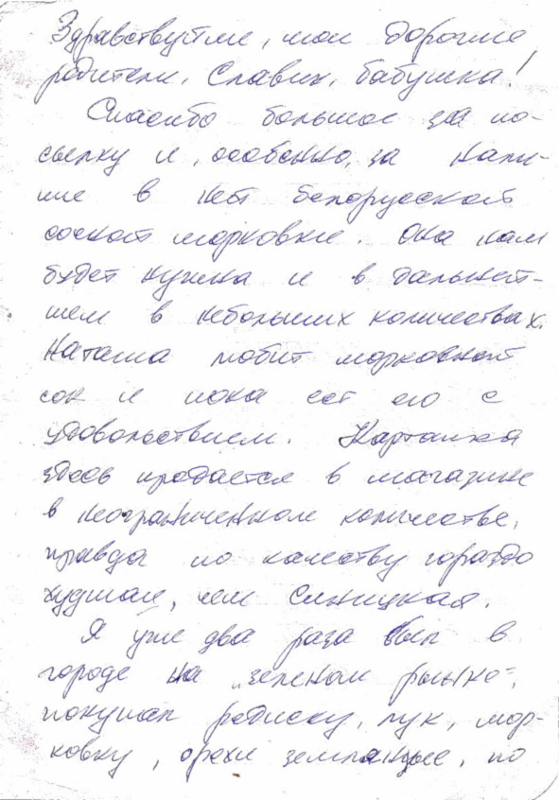 Здравствуйте, мои дорогие
родители, Славик, бабушка!
Спасибо большое за по-
сылку и, особенно, за нали-
чие в ней белорусской
сочной морковке. Она нам
будет нужна и в дальней-
шем в небольших количествах.
Наташа любит морковный
сок и пока ест его с
удовольствием. Картошка
здесь продается в магазине
в неограниченном количестве,
правда по качеству гораздо
худшая, чем Синицкая.
Я уже два раза был в
городе на „зеленом рынке",
покупал редиску, лук, мор-
ковку, орехи земляные, по